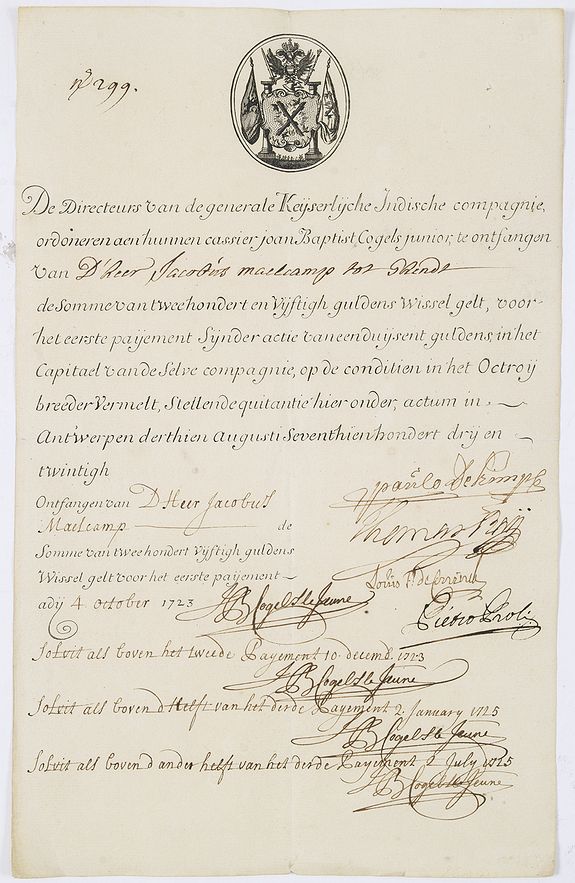 N.º 299.
De Directeurs van de generale Keijserlijche Indische compagnie,
ordoneren aen hunnen cassier joan Baptist Cogels junior, te ontfangen
van D'heer Jacobus maelcamp tot Ghendt
de Somme van tweehondert en Vijftigh guldens Wissel gelt, voor
het eerste paijement Sijnder actie van een duijsent guldens in het
Capitael van de Selve compagnie, op de conditien in het Octroij
breeder Vermelt, Stellende quitantie hier onder, actum in
Antwerpen derthien Augusti Seventhien hondert drij en
twintigh
paulo De kimpe
Ontfangen van D Heer Jacobus
Maelcamp de
Thomas Raÿ
Somme van tweehondert Vijftigh guldens
Wissel gelt voor het eerste paijement
Louis F. de Coninck
adij 4 october 1723 JB Cogels le Jeune
Pietro Proli
Solvit als boven het tweede Payement 10. decemb. 1723
JB Cogels le Jeune
Solvit als boven d Helft van het derde Payement 2. January 1725
JB Cogels le Jeune
Solvit als boven d ander helft van het derde Payement 2 July 1725
JB Cogels le Jeune